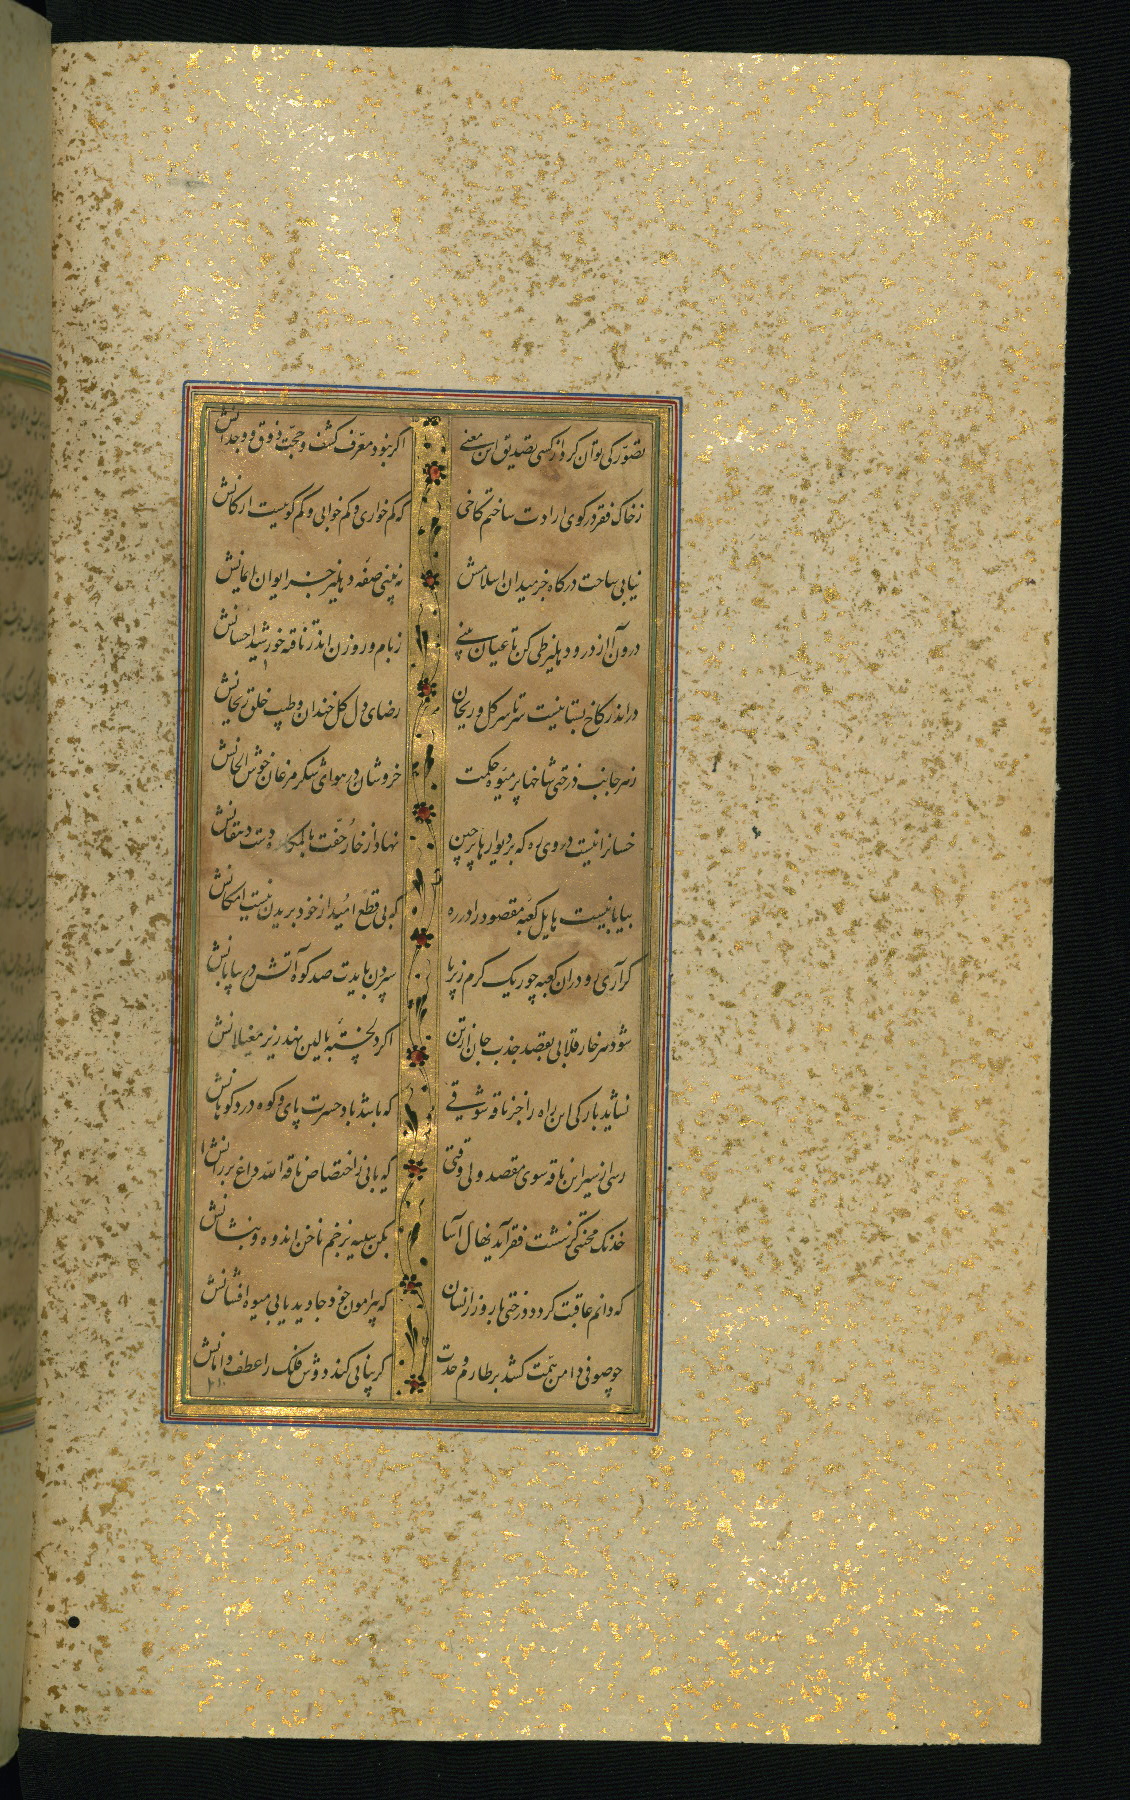 تصور کی توان کرد از کسی تصدیق این معنی اکر نبود معرف کشف و حجت ذوق و وجدانش
ز خاک فقر در کوی ارادت ساختم کاخی که کم خواری و کم خوابی و کم کوییست ارکانش
نیابی ساحت درکاه جز میدان اسلامش نه بینی صفه دهلیز جز ایوان ایمانش
درون آ از در و دهلیز طی کن تا عیان بینی ز بام و روزن اندر تافته خورشید احسانش
در اندر کاخ بستانیست سرتاسر کل و ریحان رضای دل کل خندان و طیب خلق ریحانش
ز هر جانب درختی شاخها پر میوه حکمت خروشان در هوای شکر مرغان خوش الحانش
خسانرا نیست در وی ره که بر دیوارها پرچین نهاد از خار حفت بالمکاره دست دهقانش
بیابانیست هایل کعبه مقصود را در ره که بی قطع امید از خود بریدن نیست امکانش
کر آری رو در ان کعبه چو ریک کرم زیر پا سپردن بایدت صد کوه آتش در بیابانش
شود هر خار قلابی بقصد جذب جان از تن اکر دلخسته بالین نهد زیر مغیلانش
نشاید بارکی این راه را جز ناقه شوقی که باشد باد حسرت پای و کوه درد کوهانش
رسی از سیر این ناقه سوی مقصد ولی وقتی که یابی ز اختصاص ناقة الله داغ بر رانش
خدنک محنتی کز شست فقر آید نهال آسا بکن سینه بزخم ناخن اندوه و بنشانش
که دانم عاقبت کردد درختی بارور زانسان که پیرامون خود جاوید یابی میوه افشانش
چو صوفی دامن همت کشد بر طارم وحدت کریبانی کند دوش فلک را عطف دامانش